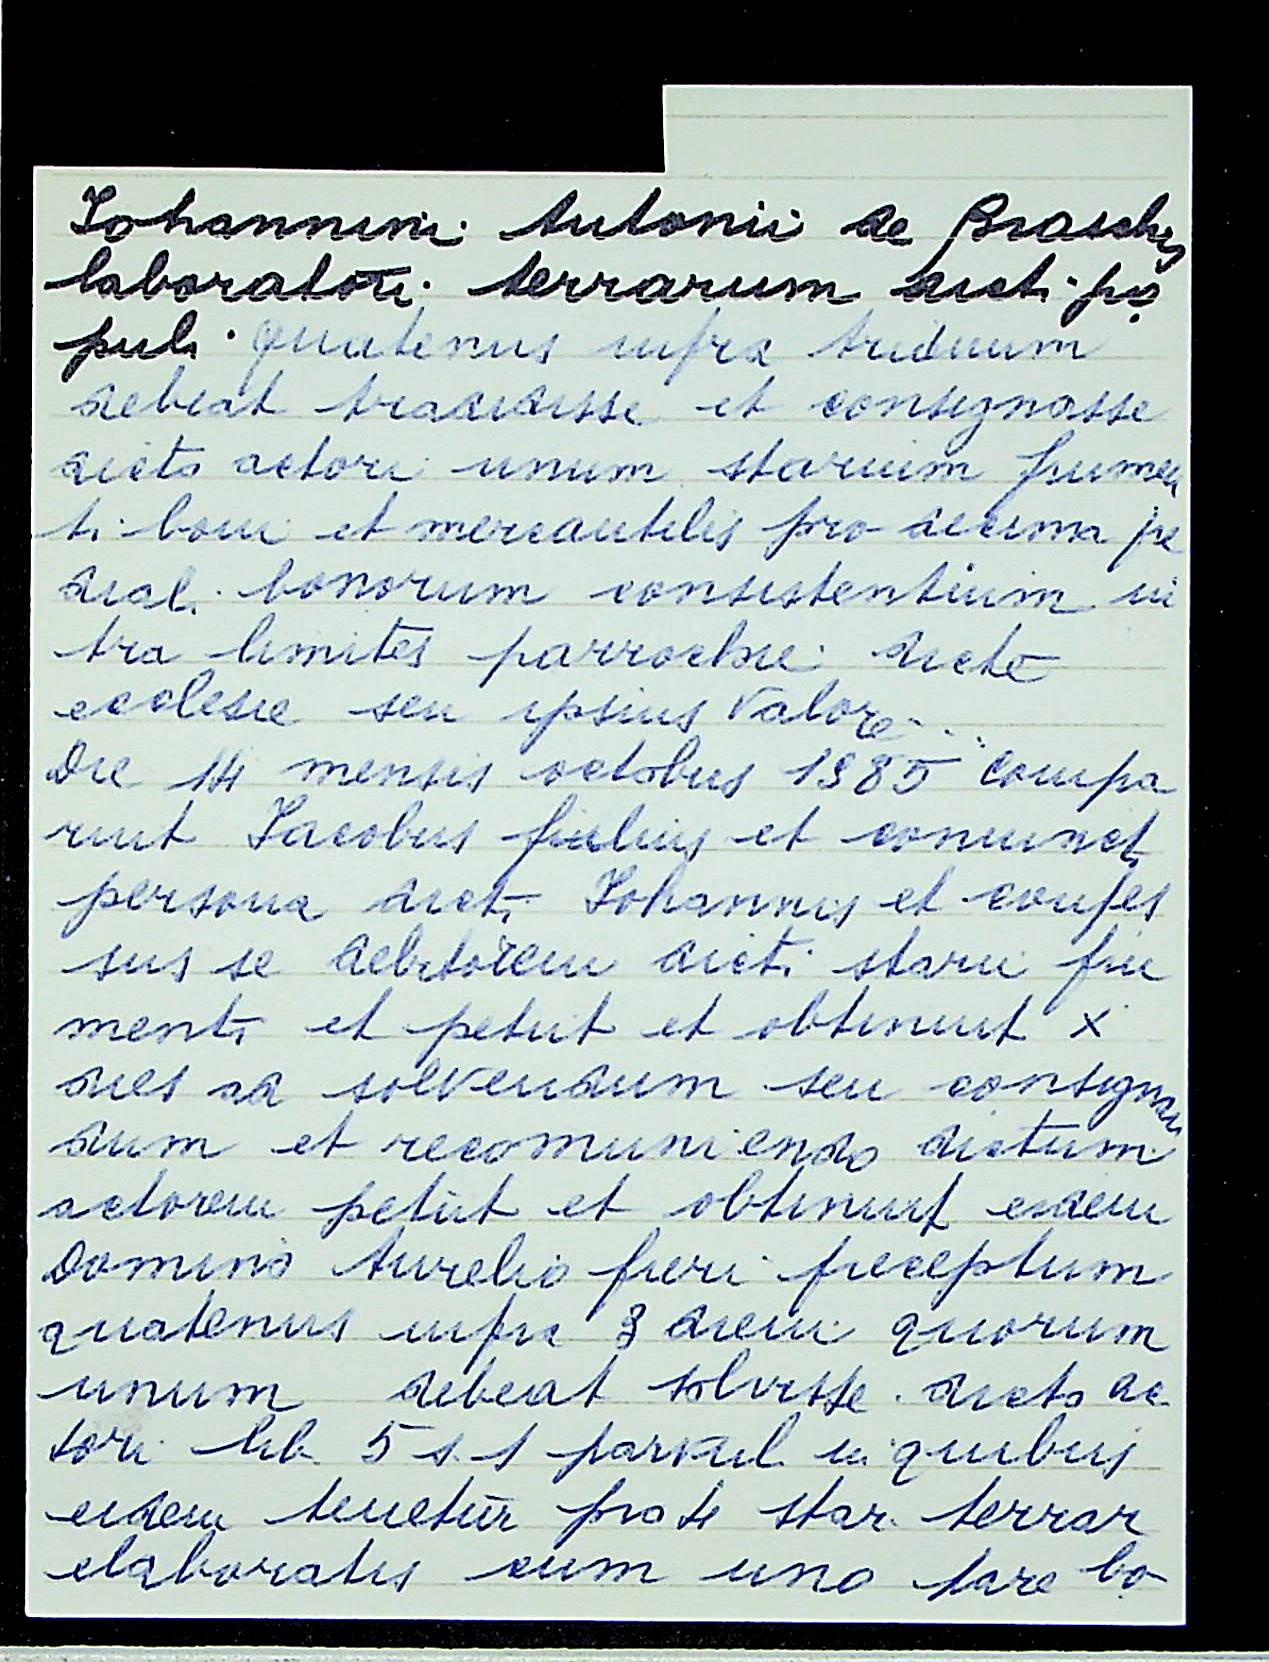 Iohannini Antonii de Braschis
laboratori terrarum dicti po
puli quatenus infra triduum
debeat tradidisse et consignasse
dicto actori unum starium frumen
ti boni et mercantilis pro decima pre
dial. bonorum consistentium in
tra limites parrochie dicte
ecclesie seu ipsius valore...
Die 14 mensis octobus 1385 compa
ruit Iacobus filius et coniunct
persona dicti Iohannis et confes
sus se debitorem dicti starii fru
menti et petiit et obtinuit x
dies ad solvendum seu consignan
dum et recomuniendo dictum
actorem petiit et obtinuit eidem
Domino Aurelio fieri preceptum
quatenus infra 3 diem quorum
unum debeat solvisse dicto ac
tori lib 5 s. 1 parvul. in quibus
eidem tenetur pro 4 star. terrar
elaboratis cum uno pare bo